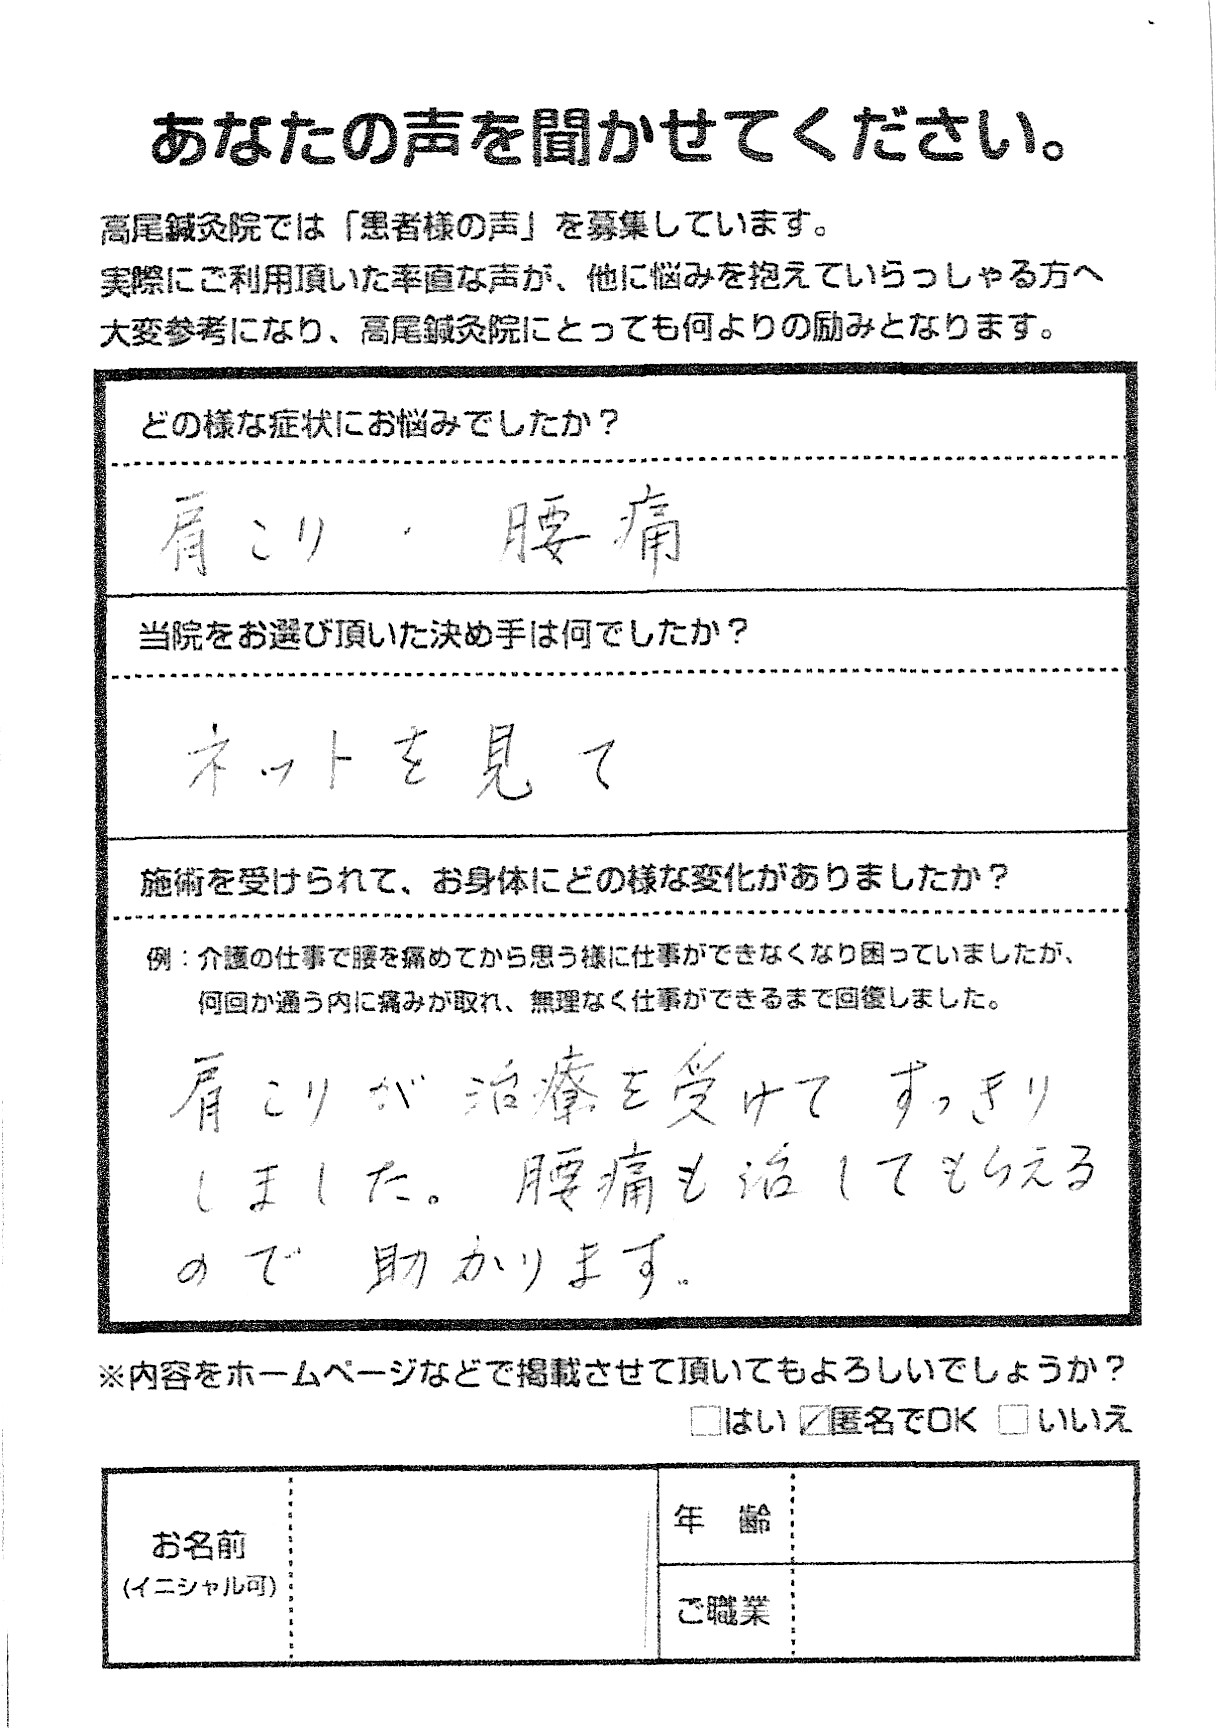 あなたの声を聞かせてください。
高尾鍼灸院では「患者様の声」を募集しています。
実際にご利用頂いた率直な声が、他に悩みを抱えていらっしゃる方へ
大変参考になり、高尾鍼灸院にとっても何よりの励みとなります。
どの様な症状にお悩みでしたか？
肩こり・腰痛
当院をお選び頂いた決め手は何でしたか？
ネットを見て
施術を受けられて、お身体にどの様な変化がありましたか？
例：介護の仕事で腰を痛めてから思う様に仕事ができなくなり困っていましたが、
何回か通う内に痛みが取れ、無理なく仕事ができるまで回復しました。
肩こりが治療を受けてすっきり
しました。腰痛も治してもらえる
ので助かります。
※内容をホームページなどで掲載させて頂いてもよろしいでしょうか？
□はい ☑匿名でOK □いいえ
お名前
(イニシャル可)
年 齢
ご職業